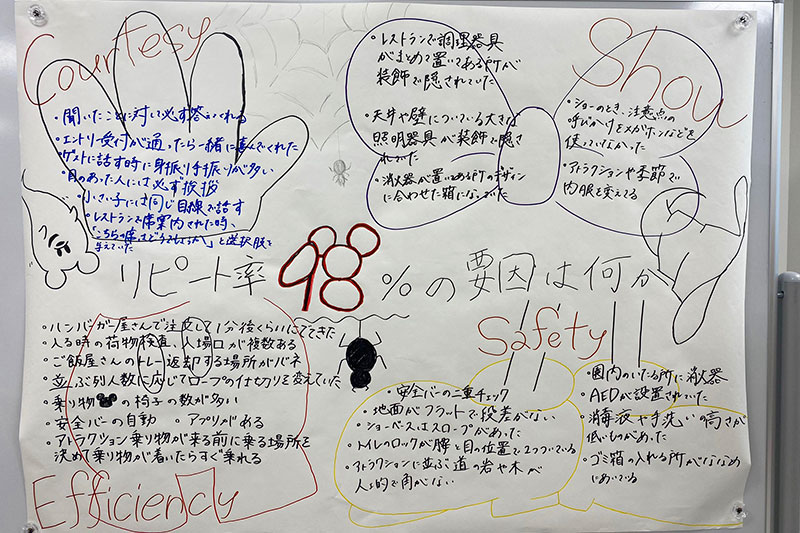 Courtesy
・聞いたことに対して必ず答えくれる
・エントリー受付が通ったら一緒に喜んでくれた
・ゲストに話す時に身振り手振りが多い
・目のあった人には必ず挨拶
・小さい子には同じ目線で話す
・レストランで席案内された時、
「こちらの席はどうでしょうか」と選択肢を
与えていた
・レストランで調理器具
がまとめて置いてある所が
装飾で隠されていた
・天井や壁についている大きな
照明器具が装飾で隠さ
れていた
・消火器が置いてある所のデザイン
に合わせた箱になっていた
Show
・ショーのとき、注意点の
呼びかけをメガホンなどを
使っていなかった
・アトラクションや季節で
内服を変えてる
リピート率98%の要因は何か
・ハンバーガー屋さんで注文して1分後くらいにでてきた
・入る時の荷物検査、入場口が複数ある
・ご飯屋さんのトレー返却する場所がバネ
・並ぶ列人数に応じてロープの仕切りを変えていた
・乗り物の椅子の数が多い
・安全バーの自動 ・アプリがある
・アトラクション乗り物が来る前に乗る場所を
決めて乗り物が着いたらすぐ乗れる
Efficiency
Safety
・安全バーの二重チェック
・地面がフラットで段差がない
・ショーベースはスロープがあった
・トイレのロックが腰と目の位置で2つついている
・アトラクションに並ぶ道の岩や木が
人工的で角がない
・園内のいたる所に消火器
AEDが設置されていた
・消毒液や手洗いの高さが
低いものがあった
・ゴミ箱の入れる所がななめ
にあいている